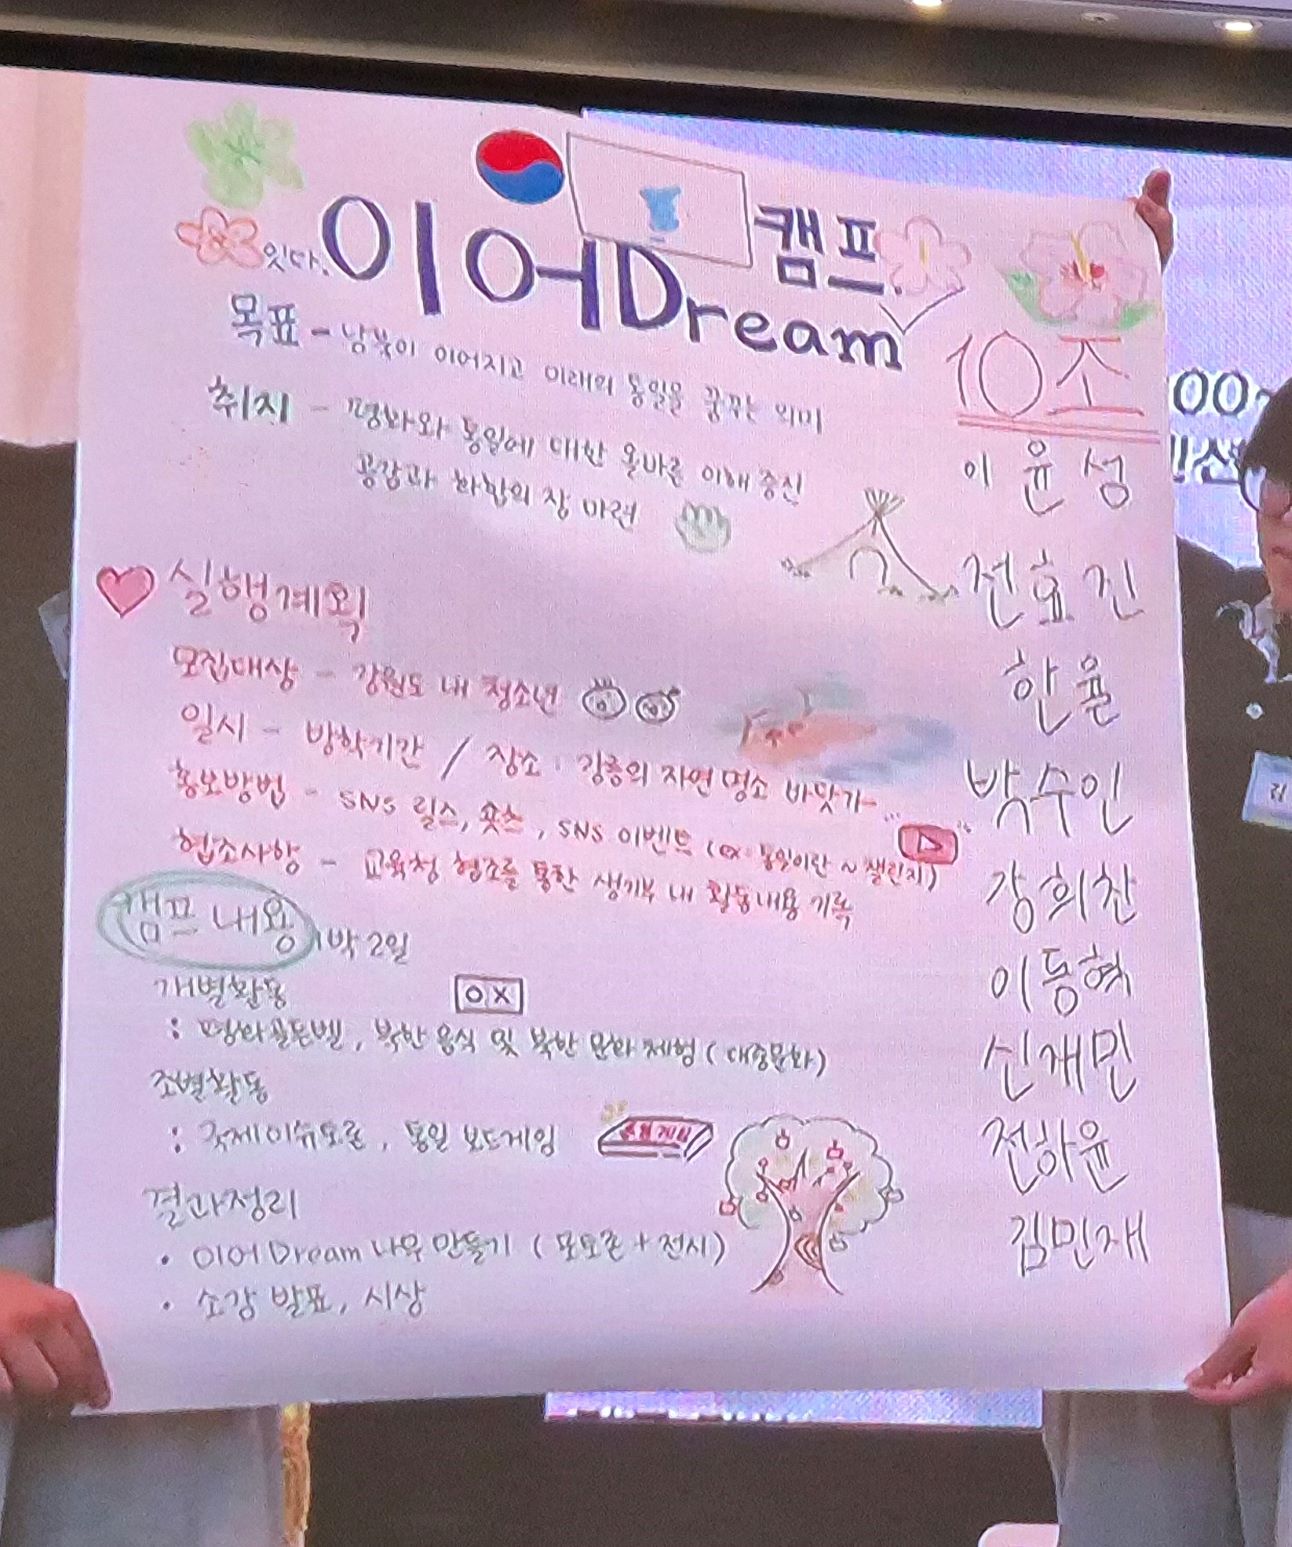 잇다.
이어Dream 캠프
목표 - 남북이 이어지고 미래의 통일을 꿈꾸는 의미
취지 - 평화와 통일에 대한 올바른 이해 증진
공감과 화합의 장 마련
실행계획
모집대상 - 강원도 내 청소년
일시 - 방학기간 / 장소 : 강릉의 자연 명소 바닷가...
홍보방법 - SNS 릴스, 숏츠, SNS 이벤트 (ex. 통일이란 ~ 챌린지)
협조사항 - 교육청 협조를 통한 생기부 내 활동내용 기록
캠프 내용 1박 2일
개별활동
OX
: 평화골든벨, 북한 음식 및 북한 문화 체험 (대중문화)
조별활동
: 주제이슈토론, 통일 보드게임
결과정리
• 이어Dream 나무 만들기 ( 포토존 + 전시)
• 소감 발표, 시상
10조
이윤성
전효진
한율
박수인
강희찬
이동혁
신재민
전하윤
김민재
00~